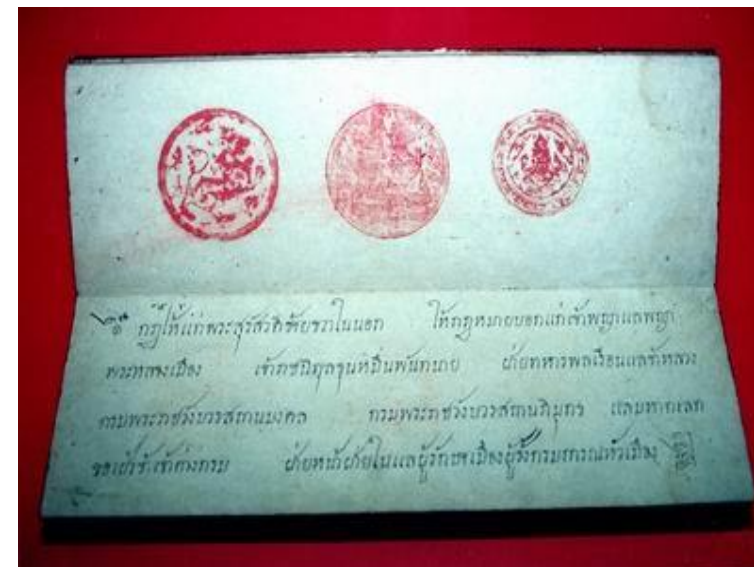 ๏ กฎให้แก่พระสุรัสวดีซ้ายขวาในนอก ให้กฎหมายบอกแก่เจ้าพญาแลพญา
พระหลวงเมือง เจ้าราชนิกุลขุนหมื่นพันทนาย ฝ่ายทหารพลเรือนแลข้าหลวง
กรมพระราชวังบวรสถานมงคล กรมพระราชวังบวรสถานภิมุกข แลมหาดเลก
ขอเฝ้าข้าเจ้าต่างกรม ฝ่ายหน้าฝ่ายในแลผู้รักษาเมืองผู้รั้งกรมการหัวเมือง